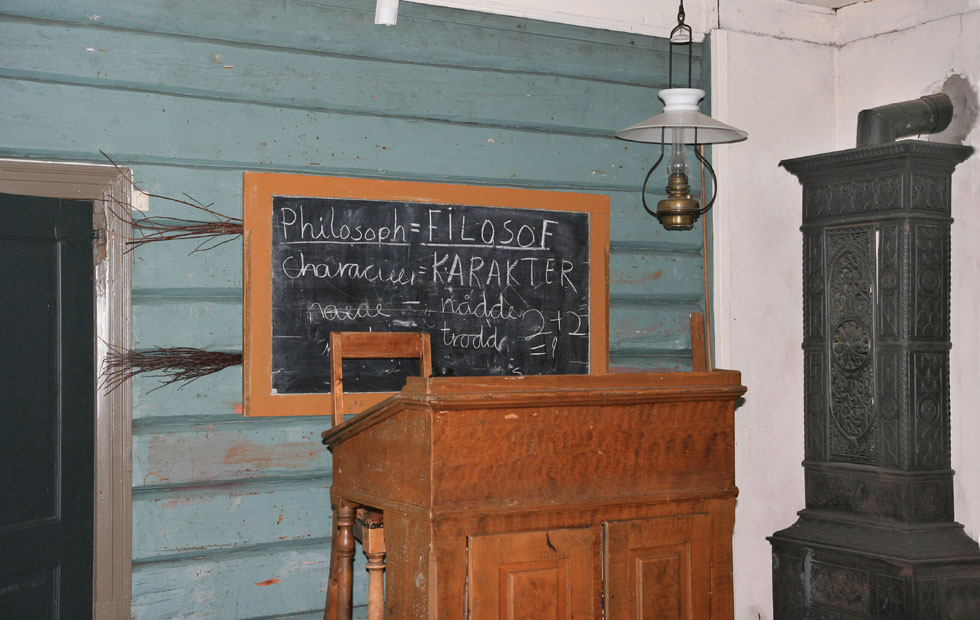 Philosoph = FiLOSOF
Character = KARAKTER
naaede = nådde
trodd
2+2
=